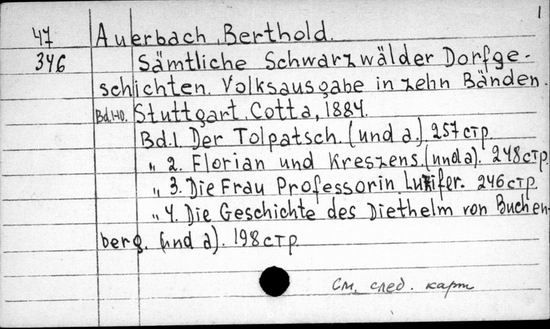 1
47 Auerbach, Berthold.
346 Sämtliche Schwarzwälder Dorfge-
schichten. Volksausgabe in zehn Bänden.
Bd.1-10. Stuttgart, Cotta, 1884.
Bd.1. Der Tolpatsch. (und a.) 257 стр.
" 2. Florian und Kreszens. (und a). 248 стр.
" 3. Die Frau Professorin. Luzifer. 246 стр.
" 4. Die Geschichte des Diethelm von Buchen-
berg. (und a). 198 стр.
См. след. карт